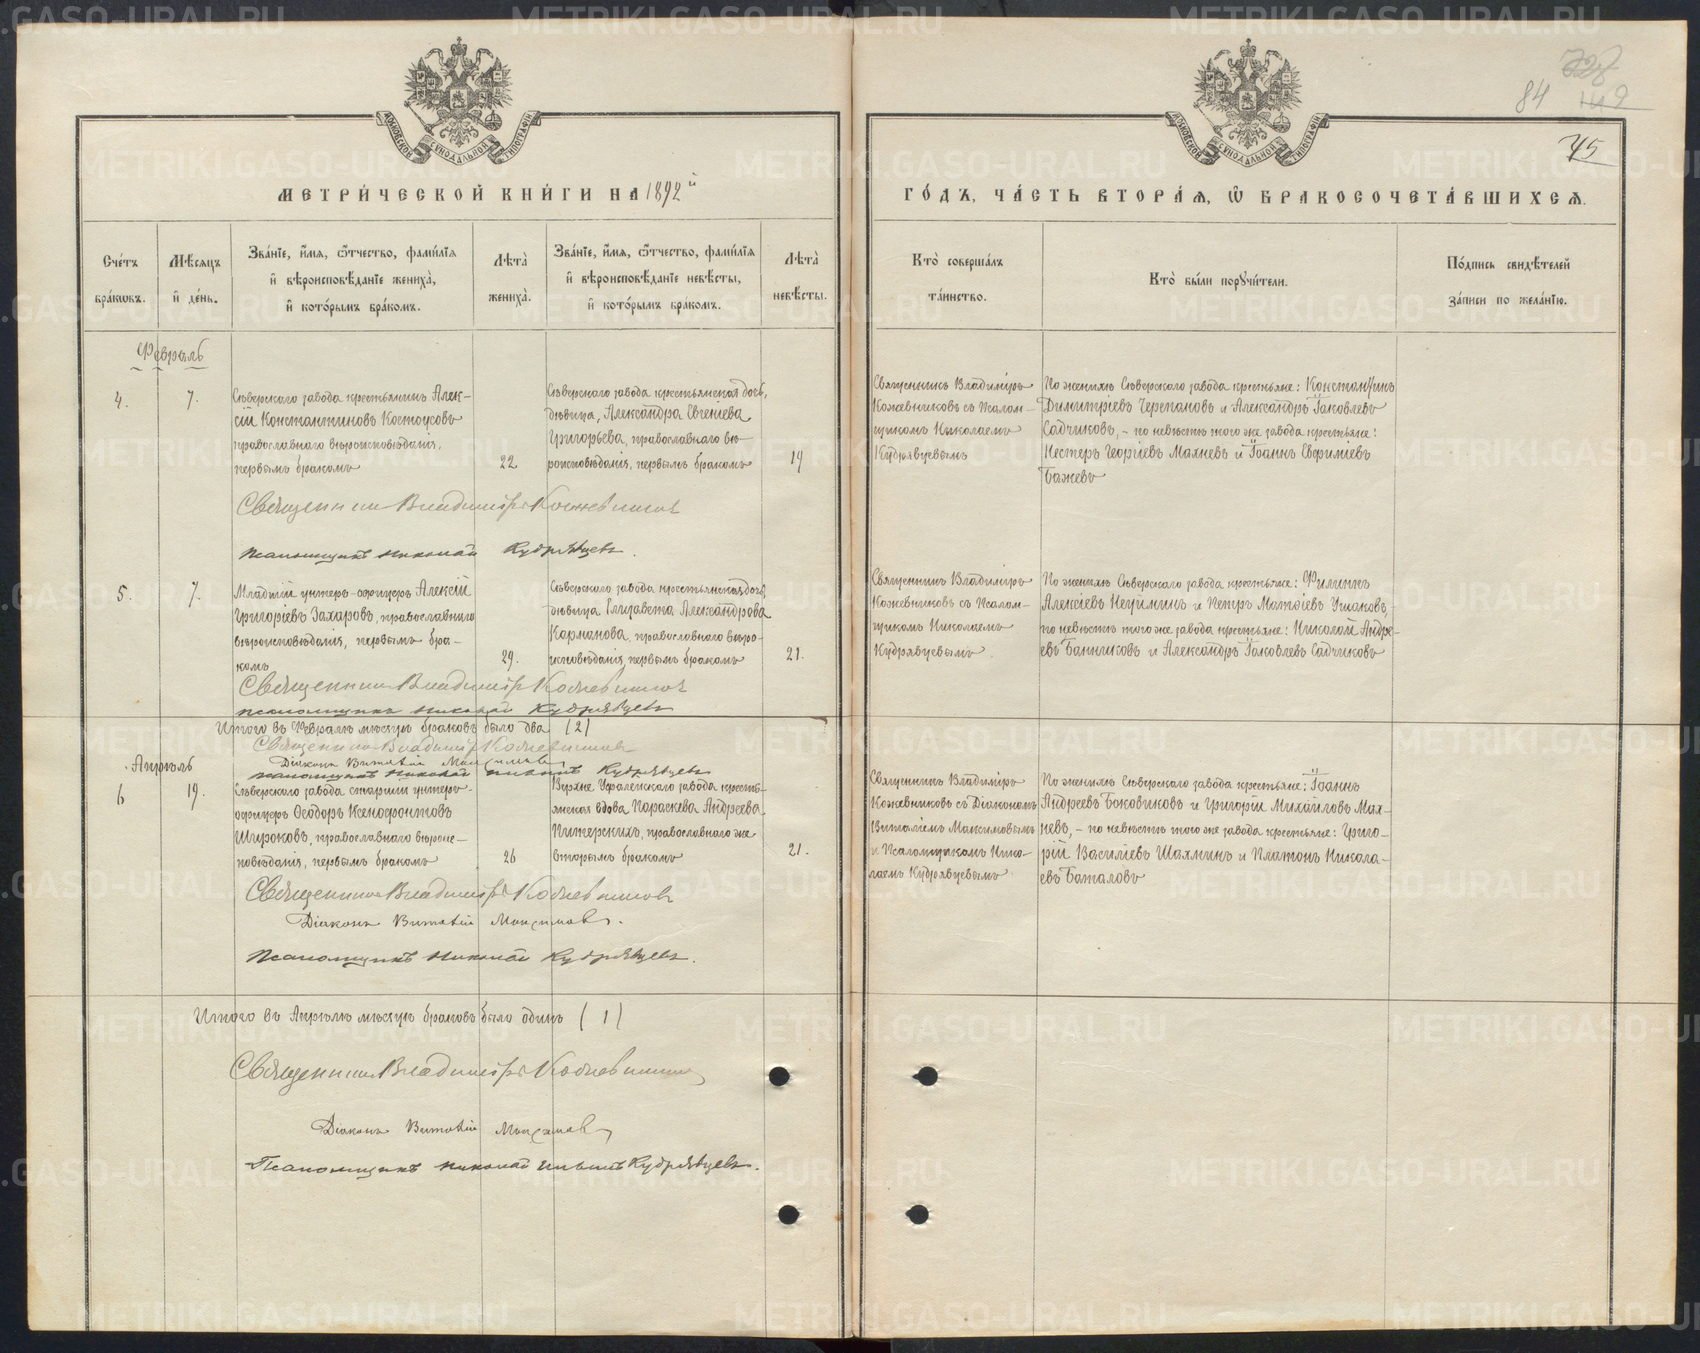 METRIKI.GASO-URAL.RU
84
75
МОСКОВСКОЙ СѴНОДАЛЬНОЙ ТИПОГРАФІИ
МОСКОВСКОЙ СѴНОДАЛЬНОЙ ТИПОГРАФІИ
МЕТРИ́ЧЕСКОЙ КНИ́ГИ НА 1892 й
ГО́ДЪ, ЧА́СТЬ ВТОРА́Я, Ѿ БРАКОСОЧЕТА́ВШИХСЯ.
Сче́тъ
бра́ковъ.
Мѣ́сяцъ
и҆ де́нь.
Зва́нїе, и҆́мя, ѻ҆́тчество, фами́лїя
и҆ вѣроисповѣ́данїе жениха̀,
и҆ кото́рымъ бра́комъ.
Лѣта̀
жениха̀.
Зва́нїе, и҆́мя, ѻ҆́тчество, фами́лїя
и҆ вѣроисповѣ́данїе невѣ́сты,
и҆ кото́рымъ бра́комъ.
Лѣта̀
невѣ́сты.
Кто̀ соверша́лъ
та́инство.
Кто̀ бы́ли порꙋчи́тели.
По́дпись свидѣ́телей
за́писи по жела́нїю.
Февраль
4.
7.
Сѣверскаго завода крестьянинъ Алек-
сій Константиновъ Костоусовъ
православнаго вѣроисповѣданія,
первымъ бракомъ
22
Сѣверскаго завода крестьянская дочь,
дѣвица, Александра Евгеніева
Григорьева, православнаго вѣ-
роисповѣданія, первымъ бракомъ
19
Священникъ Владиміръ
Кожевниковъ съ Псалом-
щикомъ Николаемъ
Кудрявцевымъ
По женихѣ Сѣверскаго завода крестьяне: Константинъ
Димитріевъ Черепановъ и Александръ Іаковлевъ
Садчиковъ, - по невѣстѣ того же завода крестьяне:
Нестеръ Георгіевъ Махневъ и Іоаннъ Евфиміевъ
Бажевъ
Священникъ Владиміръ Кожевниковъ
Псаломщикъ Николай Кудрявцевъ.
5.
7.
Младшій унтеръ-офицеръ Алексій
Григоріевъ Захаровъ, православнаго
вѣроисповѣданія, первымъ бра-
комъ
29.
Сѣверскаго завода крестьянская дочь,
дѣвица Елизавета Александрова
Карманова, православнаго вѣро-
исповѣданія, первымъ бракомъ
21.
Священникъ Владиміръ
Кожевниковъ съ Псалом-
щикомъ Николаемъ
Кудрявцевымъ
По женихѣ Сѣверскаго завода крестьяне: Филиппъ
Алексіевъ и Петръ Матѳіевъ Ушаковъ
по невѣстѣ того же завода крестьяне: Николай Андре-
евъ Банниковъ и Александръ Іаковлевъ Садчиковъ
Священникъ Владиміръ Кожевниковъ
Псаломщикъ Николай Кудрявцевъ
Итого въ Февралѣ мѣсяцѣ браковъ было два (2)
Священникъ Владиміръ Кожевниковъ
Діаконъ Виталій Максимовъ
Псаломщикъ Николай Кудрявцевъ
Апрѣль
6
19.
Сѣверскаго завода старшій унтеръ-
офицеръ Ѳеодоръ Ксенофонтовъ
Широковъ, православнаго вѣроис-
повѣданія, первымъ бракомъ
26
Верхне-Уфалейскаго завода кресть-
янская вдова Параскева Андреева
Питерскихъ, православнаго же
вторымъ бракомъ
21.
Священникъ Владиміръ
Кожевниковъ съ Діакономъ
Виталіемъ Максимовымъ
и Псаломщикомъ Нико-
лаемъ Кудрявцевымъ
По женихѣ Сѣверскаго завода крестьяне: Іоаннъ
Андреевъ Боковиковъ и Григорій Михайловъ Мах-
невъ, - по невѣстѣ того же завода крестьяне: Григо-
рій Василіевъ Шахминъ и Платонъ Никола-
евъ Баталовъ
Священникъ Владиміръ Кожевниковъ
Діаконъ Виталій Максимовъ.
Псаломщикъ Николай Кудрявцевъ.
Итого въ Апрѣлѣ мѣсяцѣ браковъ было одинъ (1)
Священникъ Владиміръ Кожевниковъ
Діаконъ Виталій Максимовъ
Псаломщикъ Николай Ильинъ Кудрявцевъ.